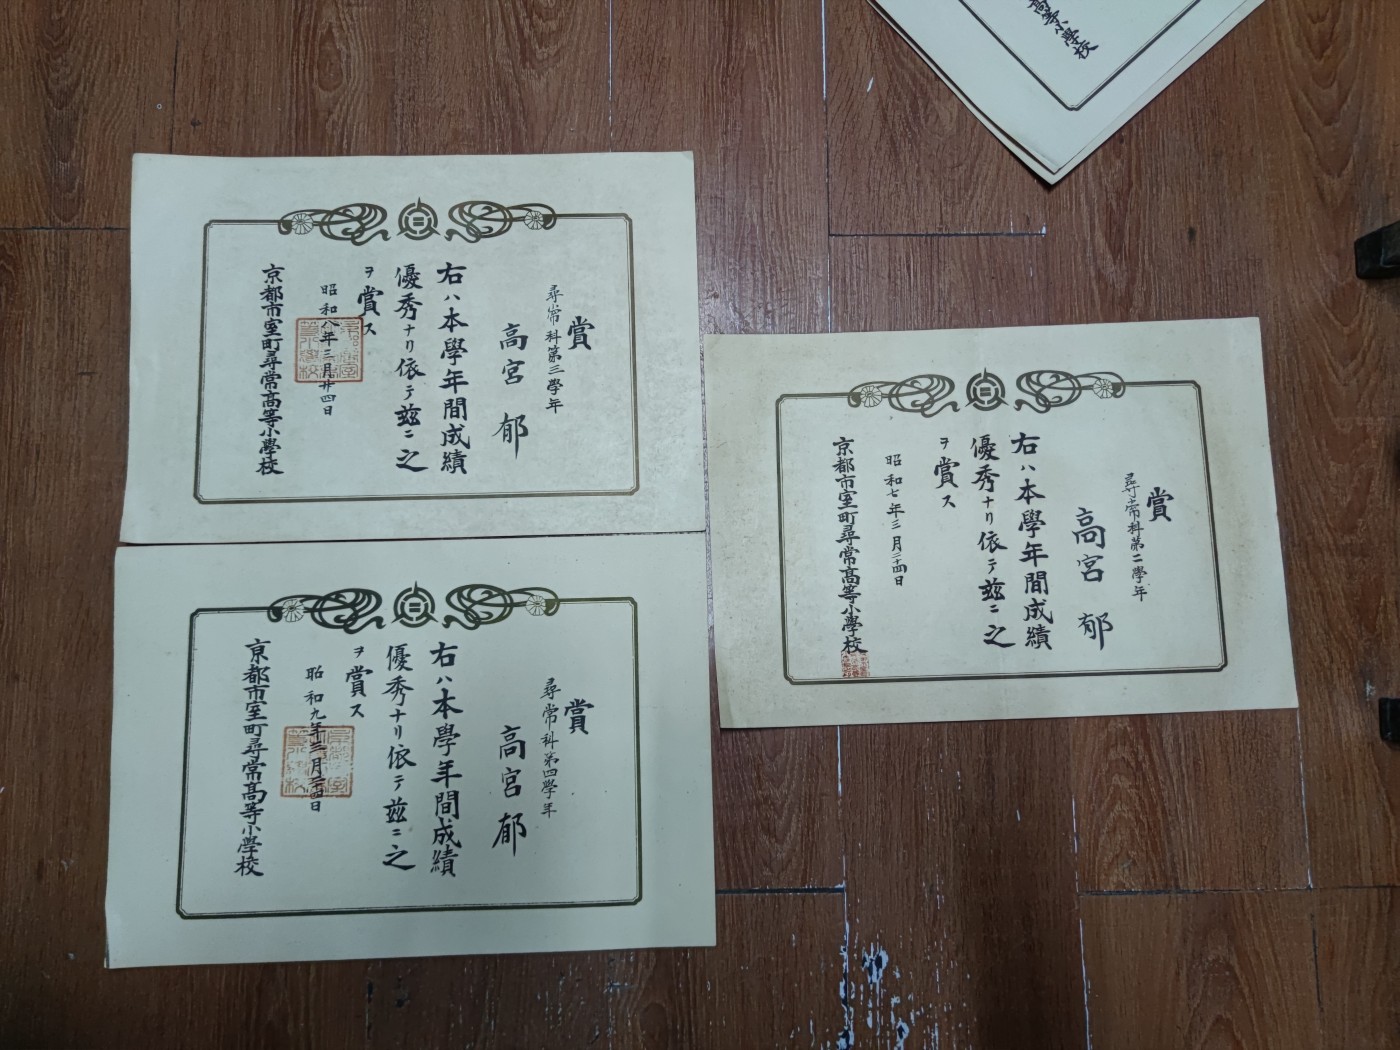 賞
尋常科第三學年
高宮 郁
右ハ本學年間成績
優秀ナリ依テ茲ニ之
ヲ賞ス
昭和八年三月廿四日
京都市室町尋常高等小學校
賞
尋常科第四學年
高宮 郁
右ハ本學年間成績
優秀ナリ依テ茲ニ之
ヲ賞ス
昭和九年三月二十四日
京都市室町尋常高等小學校
賞
尋常科第二學年
高宮 郁
右ハ本學年間成績
優秀ナリ依テ茲ニ之
ヲ賞ス
昭和七年三月二十四日
京都市室町尋常高等小學校
高等小學校